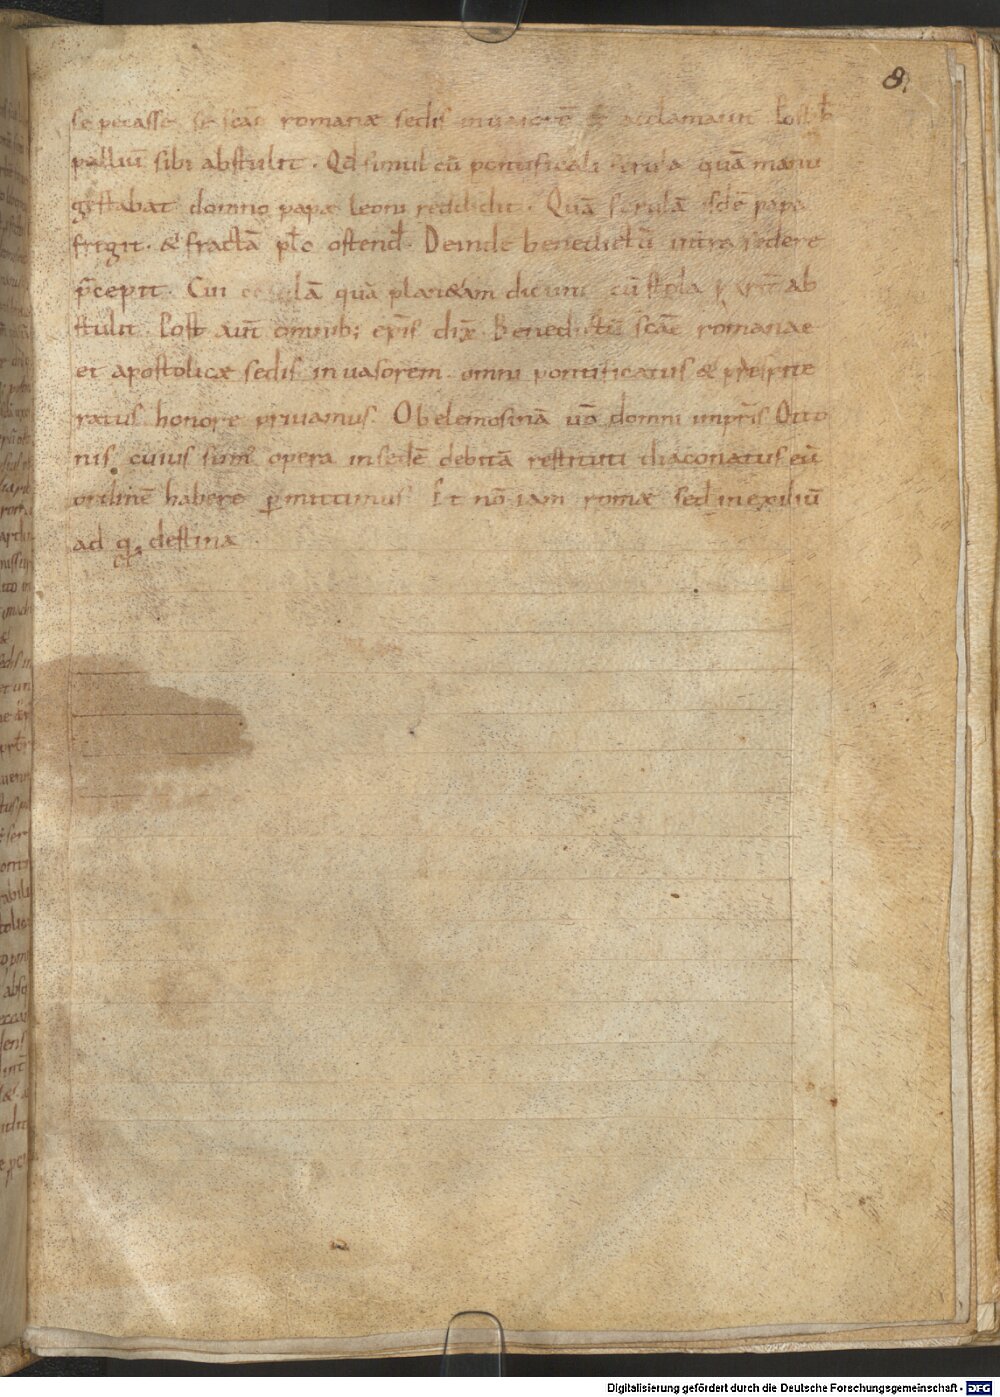 8.
se peccasse se scae romanae sedis inuasorē ee acclamauit. Post h
palliū sibi abstulit. Qd simul cū pontificali ferula quā manu
gestabat domno papae leoni reddidit. Quā ferulā isdē papa
fregit. & fractā plo ostend. Deinde benedictū in terra sedere
p̄cepit. Cui casulā quā planetam dicunt cū stola pariter ab
stulit. Post aut omnib; epis dix. Benedictū scae romanae
et apostolicae sedis inuasorem omni pontificatus & presbite
ratus honore priuamus. Ob elemosinā uō domni impris Otto
nis cuius sum opera in sedē debitā restituti diaconatus eū
ordinē habere pmittimus. Et nō iam romae sed in exiliū
ad q̄ destina
Digitalisierung gefördert durch die Deutsche Forschungsgemeinschaft - DFG